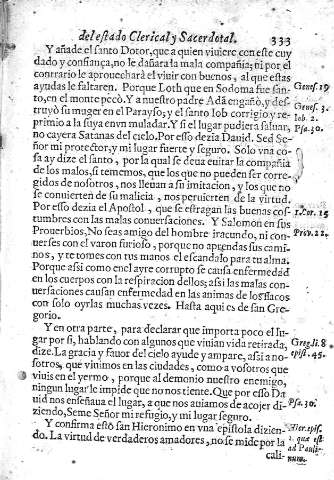 del estado Clerical y Sacerdotal. 333
Y añade el santo Dotor, que a quien viuiere con este cuy
dado y confiança, no le dañara la mala compañia; ni por el
contrario le aprouechará el viuir con buenos, al que estas
ayudas le faltaren. Porque Loth que en Sodoma fue san-
to, en el monte pecò. Y a nuestro padre Adã engañó, y des-
truyò su muger en el Parayso; y el santo Iob corrigio y re-
primio a la suya en vn muladar. Y si el lugar pudiera saluar,
no cayera Satanas del cielo. Por esso dezia Dauid. Sed Se-
ñor mi protector, y mi lugar fuerte y seguro. Solo vna co-
sa ay dize el santo, por la qual se deua euitar la compañia
de los malos, si tememos, que los que no pueden ser corre-
gidos de nosotros, nos lleuan a su imitacion, y los que no
se conuierten de su malicia, nos peruierten de la virtud.
Por esso dezia el Apostol, que se estragan las buenas cos-
tumbres con las malas conuersaciones. Y Salomon en sus
Prouerbios, No seas amigo del hombre iracundo, ni con-
uerses con el varon furioso, porque no aprendas sus cami-
nos, y te tomes con tus manos el escandalo para tu alma.
Porque assi como en el ayre corrupto se causa enfermedad
en los cuerpos con la respiracion dellos; assi las malas con-
uersaciones causan enfermedad en las animas de los flacos
con solo oyrlas muchas vezes. Hasta aqui es de san Gre-
gorio.
Y en otra parte, para declarar que importa poco el lu-
gar por si, hablando con algunos que viuian vida retirada,
dize. La gracia y fauor del cielo ayude y ampare, assi a no-
sotros, que viuimos en las ciudades, como a vosotros que
viuis en el yermo, porque al demonio nuestro enemigo,
ningun lugar le impide que no nos tiente. Que por esso Da
uid nos enseñaua el lugar, a que nos auiamos de acojer di-
ziendo, Seme Señor mi refugio, y mi lugar seguro.
Y confirma esto san Hieronimo en vna epistola dizien-
do. La virtud de verdaderos amadores, no se mide por la
cali-
Genes. 19
Genes. 3.
Iob. 2.
Psa. 30.
1. Cor. 15
Prou. 22.
Greg. li. 8.
epist. 45.
Psa. 30.
Hier. epis.
quæ est
ad Pauli-
num.